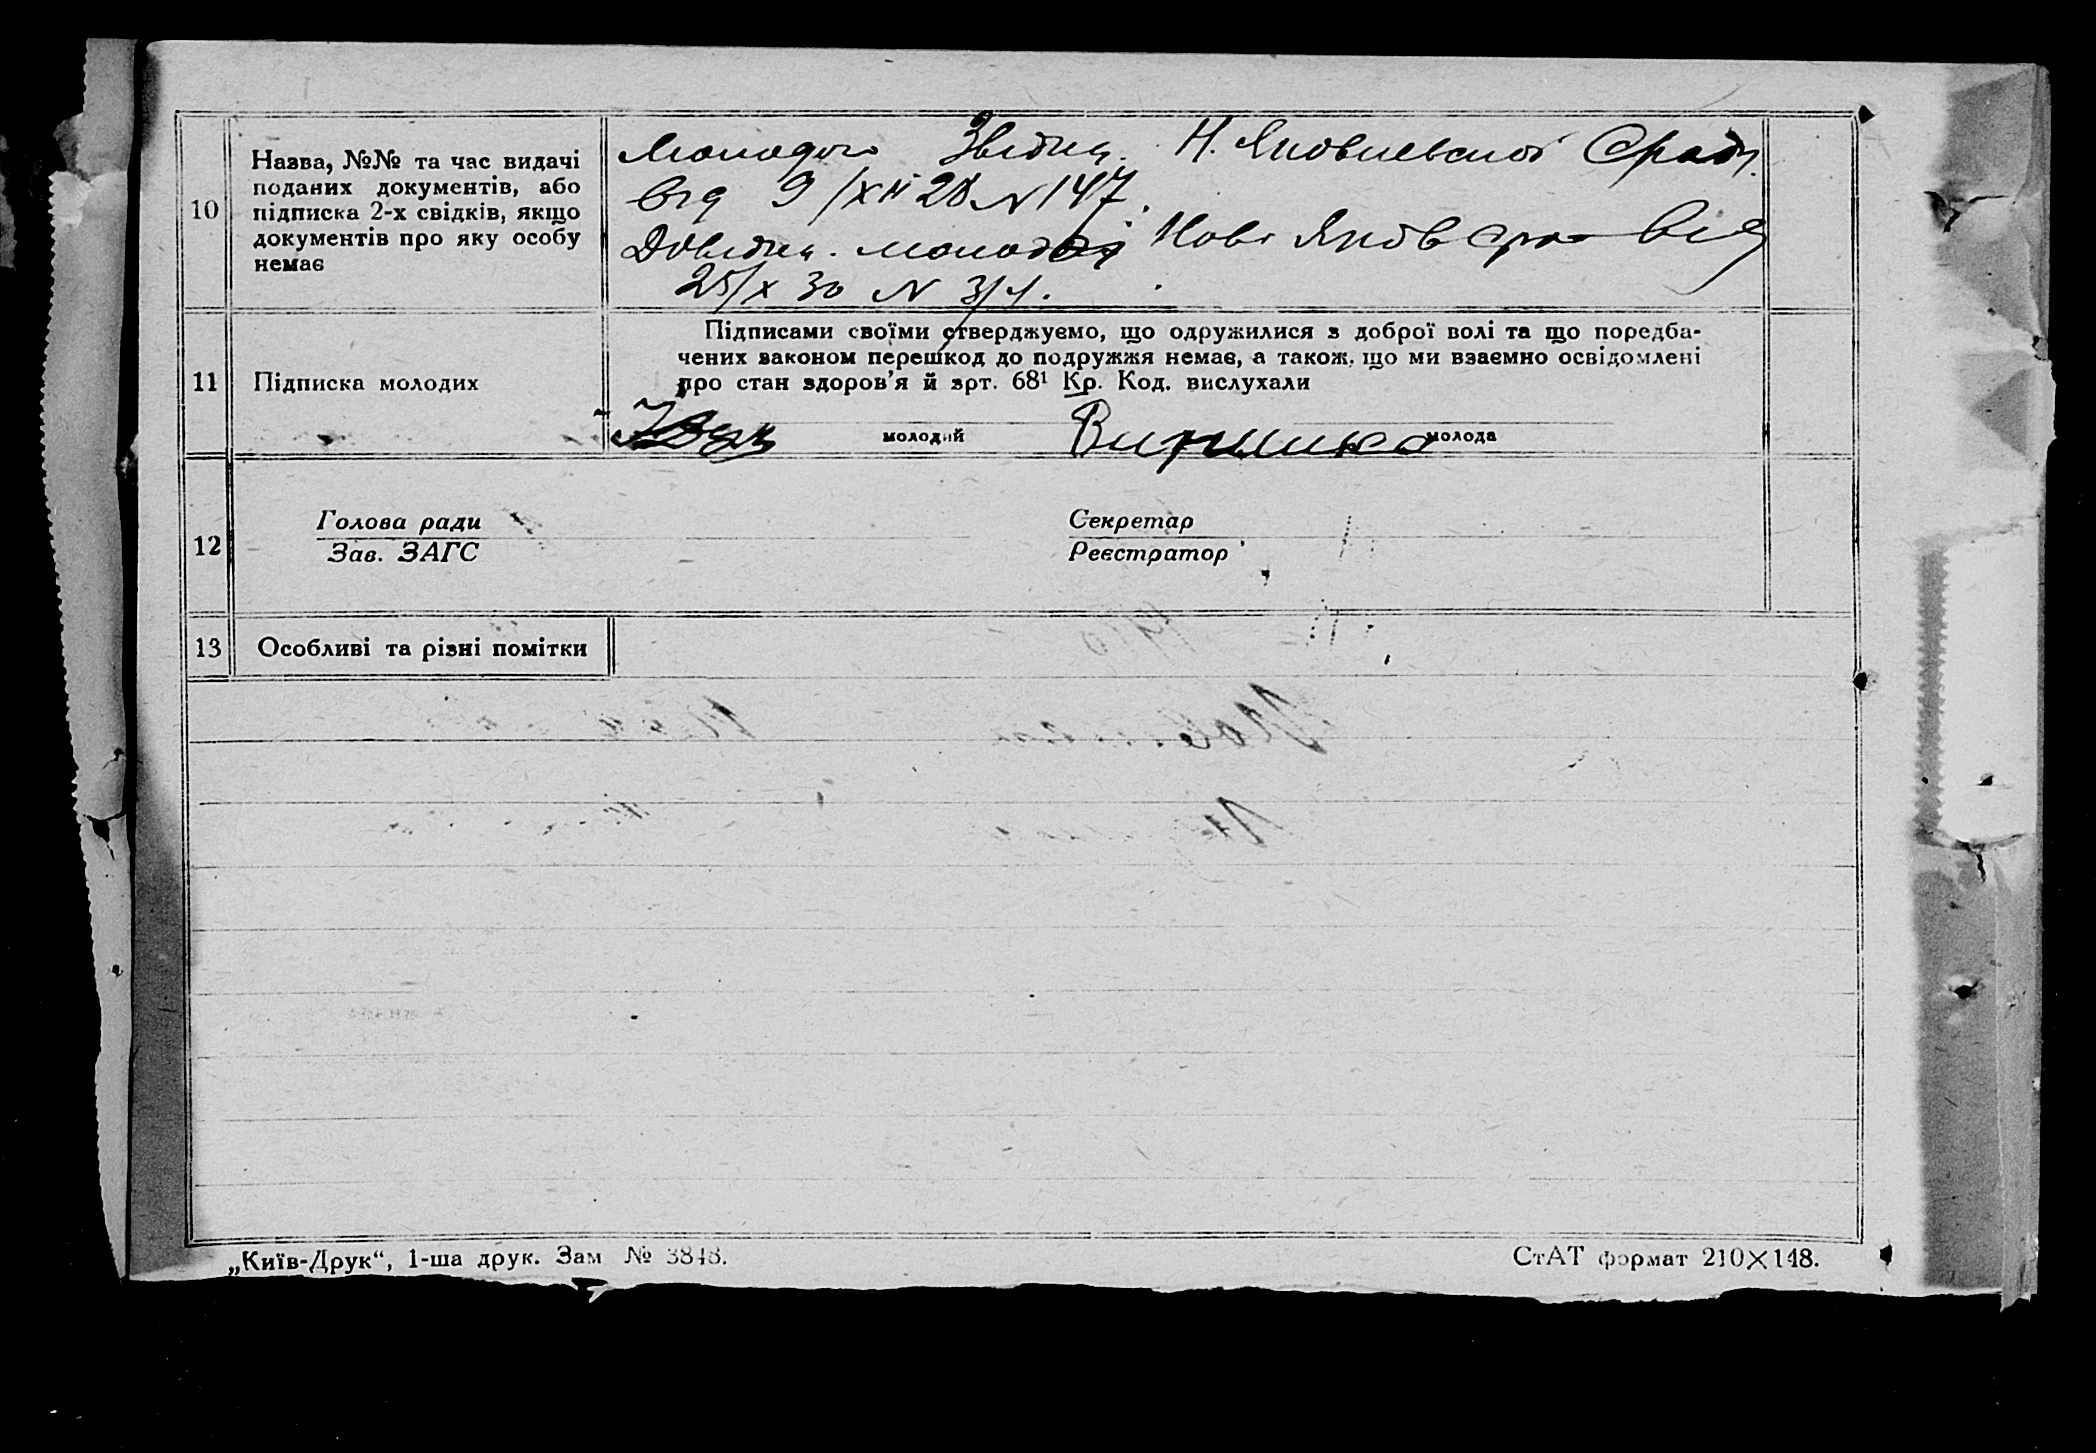 10
Назва, №№ та час видачі
поданих документів, або
підписка 2-х свідків, якщо
документів про яку особу
немає
Молодого Звідка Н. Яковлевської Сради.
від 9/XII 28 N 147.
Довідка. молодої Ново Яков сра від
25/X 30 N
11
Підписка молодих
Підписами своїми стверджуємо, що одружилися з доброї волі та що передба-
чених законом перешкод до подружжя немає, а також, що ми взаємно освідомлені
про стан здоров'я й арт. 68¹ Кр. Код. вислухали
молодий
молода
12
Голова ради
Зав. ЗАГС
Секретар
Реєстратор
13
Особливі та різні помітки
„Київ-Друк“, 1-ша друк. Зам № 3848.
СтАТ формат 210×148.